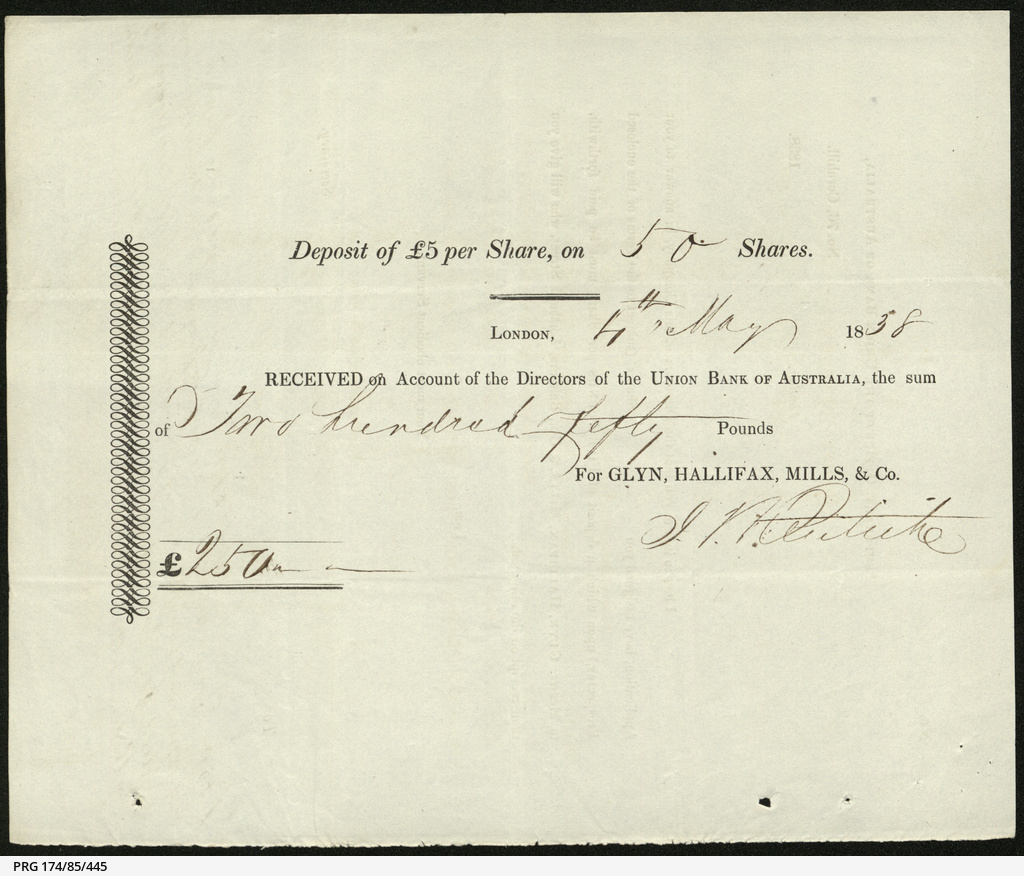 Deposit of £5 per Share, on 50 Shares.
LONDON, 4th May 1838
RECEIVED on Account of the Directors of the UNION BANK OF AUSTRALIA, the sum
of Two hundred Fifty Pounds
For GLYN, HALLIFAX, MILLS, & Co.
£250
PRG 174/85/445